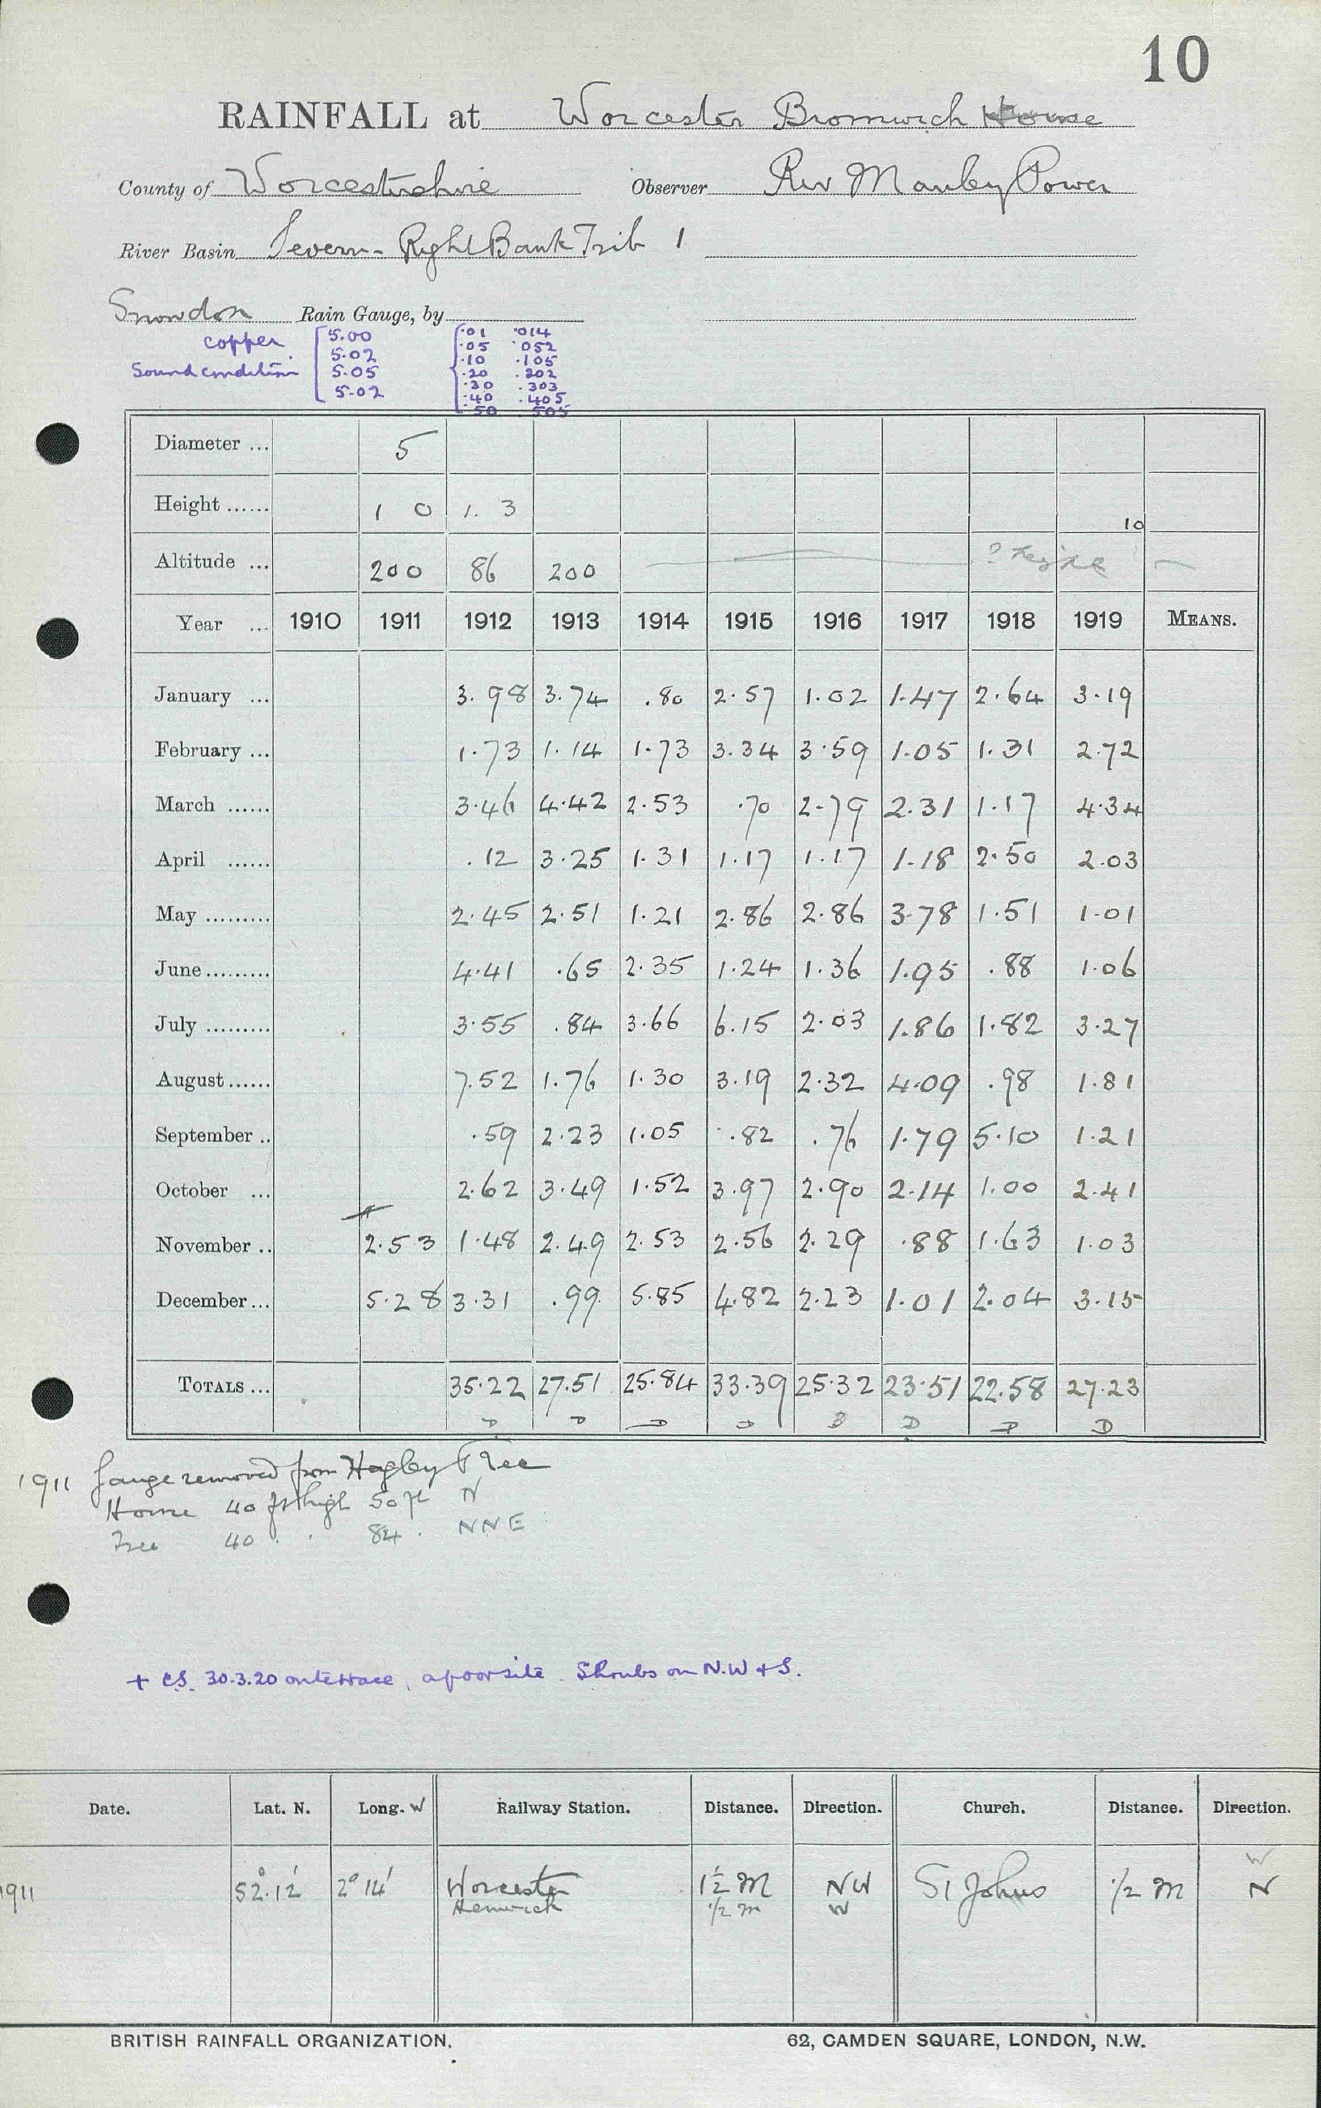 10
RAINFALL at Worcester Bromwich House
County of Worcestershire Observer Rev Manley Power
River Basin Severn - Right Bank Trib 1
Snowdon Rain Gauge, by
copper 5.00 .01 .014
5.02 .05 .052
Sound condition 5.05 .10 .105
5.02 .20 .202
.30 .303
.40 .405
.50 .505
Diameter ... 5
Height ...... 1 0 1. 3 10
Altitude ... 200 86 200 ?
Year ... 1910 1911 1912 1913 1914 1915 1916 1917 1918 1919 MEANS.
January ... 3.98 3.74 .80 2.57 1.02 1.47 2.64 3.19
February ... 1.73 1.14 1.73 3.34 3.59 1.05 1.31 2.72
March ...... 3.46 4.42 2.53 .70 2.79 2.31 1.17 4.34
April ...... .12 3.25 1.31 1.17 1.17 1.18 2.50 2.03
May ......... 2.45 2.51 1.21 2.86 2.86 3.78 1.51 1.01
June ......... 4.41 .65 2.35 1.24 1.36 1.95 .88 1.06
July ......... 3.55 .84 3.66 6.15 2.03 1.86 1.82 3.27
August ...... 7.52 1.76 1.30 3.19 2.32 4.09 .98 1.81
September .. .59 2.23 1.05 .82 .76 1.79 5.10 1.21
October ... 2.62 3.49 1.52 3.97 2.90 2.14 1.00 2.41
November .. 2.53 1.48 2.49 2.53 2.56 2.29 .88 1.63 1.03
December ... 5.28 3.31 .99 5.85 4.82 2.23 1.01 2.04 3.15
TOTALS ... 35.22 27.51 25.84 33.39 25.32 23.51 22.58 27.23
D D D D D D D D
1911 Gauge removed from Hagley
House 40 ft high 50 ft N
Tree 40 " 84 " NNE
+ C.S. 30.3.20 on terrace, a poor site. Shrubs on N.W + S.
Date. Lat. N. Long. W Railway Station. Distance. Direction. Church. Distance. Direction.
W
1911 52° 12' 2° 14' Worcester 1½ M NW St Johns 1/2 M N
Henwick 1/2 m W
BRITISH RAINFALL ORGANIZATION. 62, CAMDEN SQUARE, LONDON, N.W.